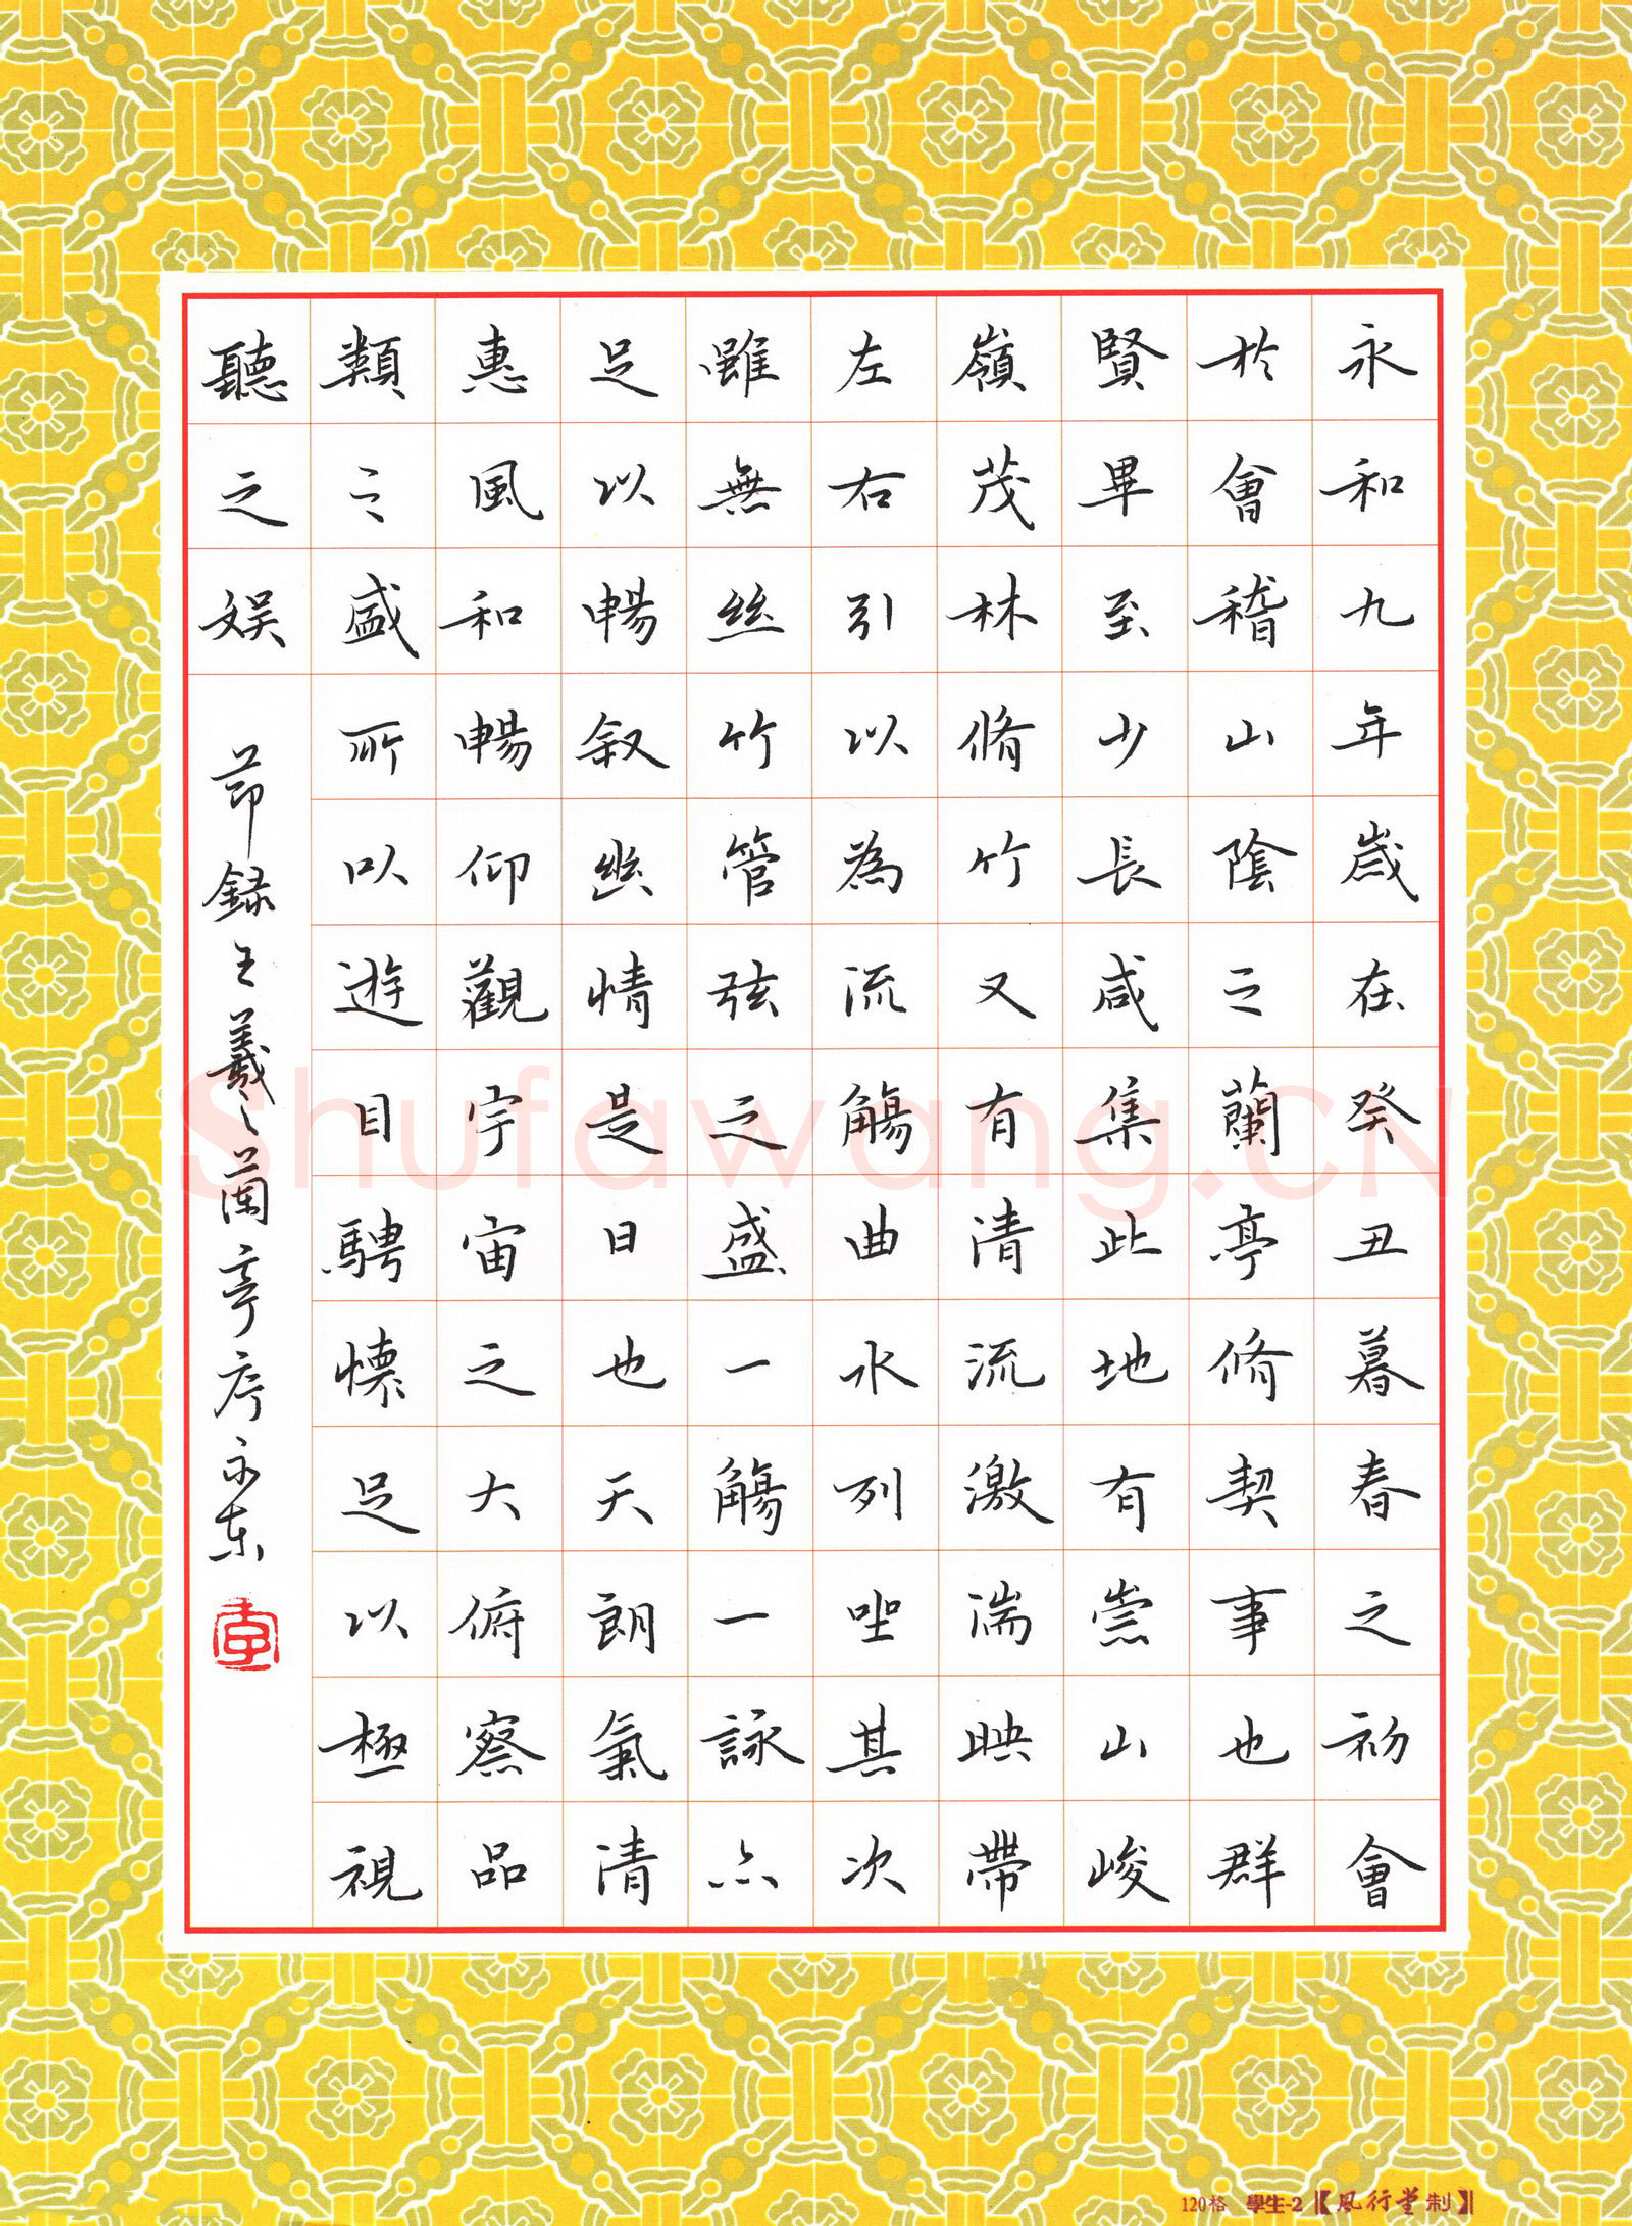 永和九年歲在癸丑暮春之初會
於會稽山陰之蘭亭脩契事也群
賢畢至少長咸集此地有崇山峻
嶺茂林脩竹又有清流激湍映帶
左右引以為流觴曲水列坐其次
雖無絲竹管弦之盛一觴一詠亦
足以暢叙幽情是日也天朗氣清
惠風和暢仰觀宇宙之大俯察品
類之盛所以遊目騁懷足以極視
聽之娛
節録王羲之蘭亭序永東
Shufawang.CN
120格 學生-2【風行堂制】